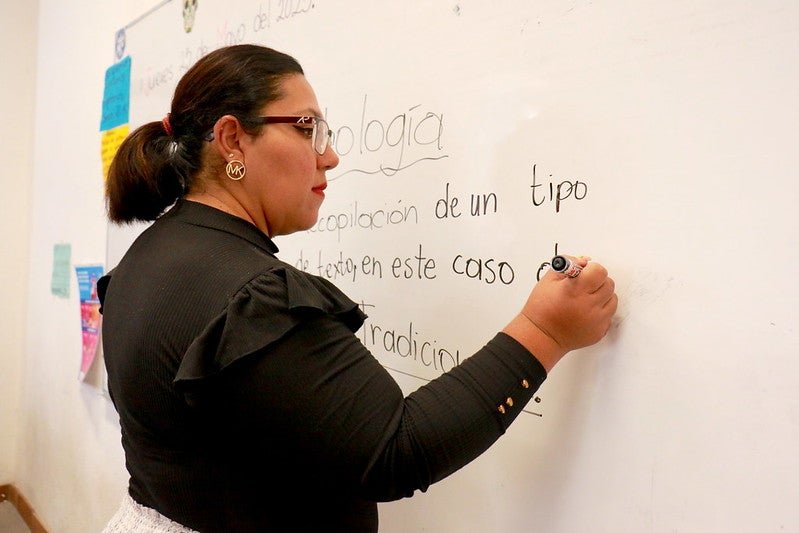 Jueves de Mayo del 2025.
ología
ecopilación de un tipo
de texto, en este caso
Tradicio
MK